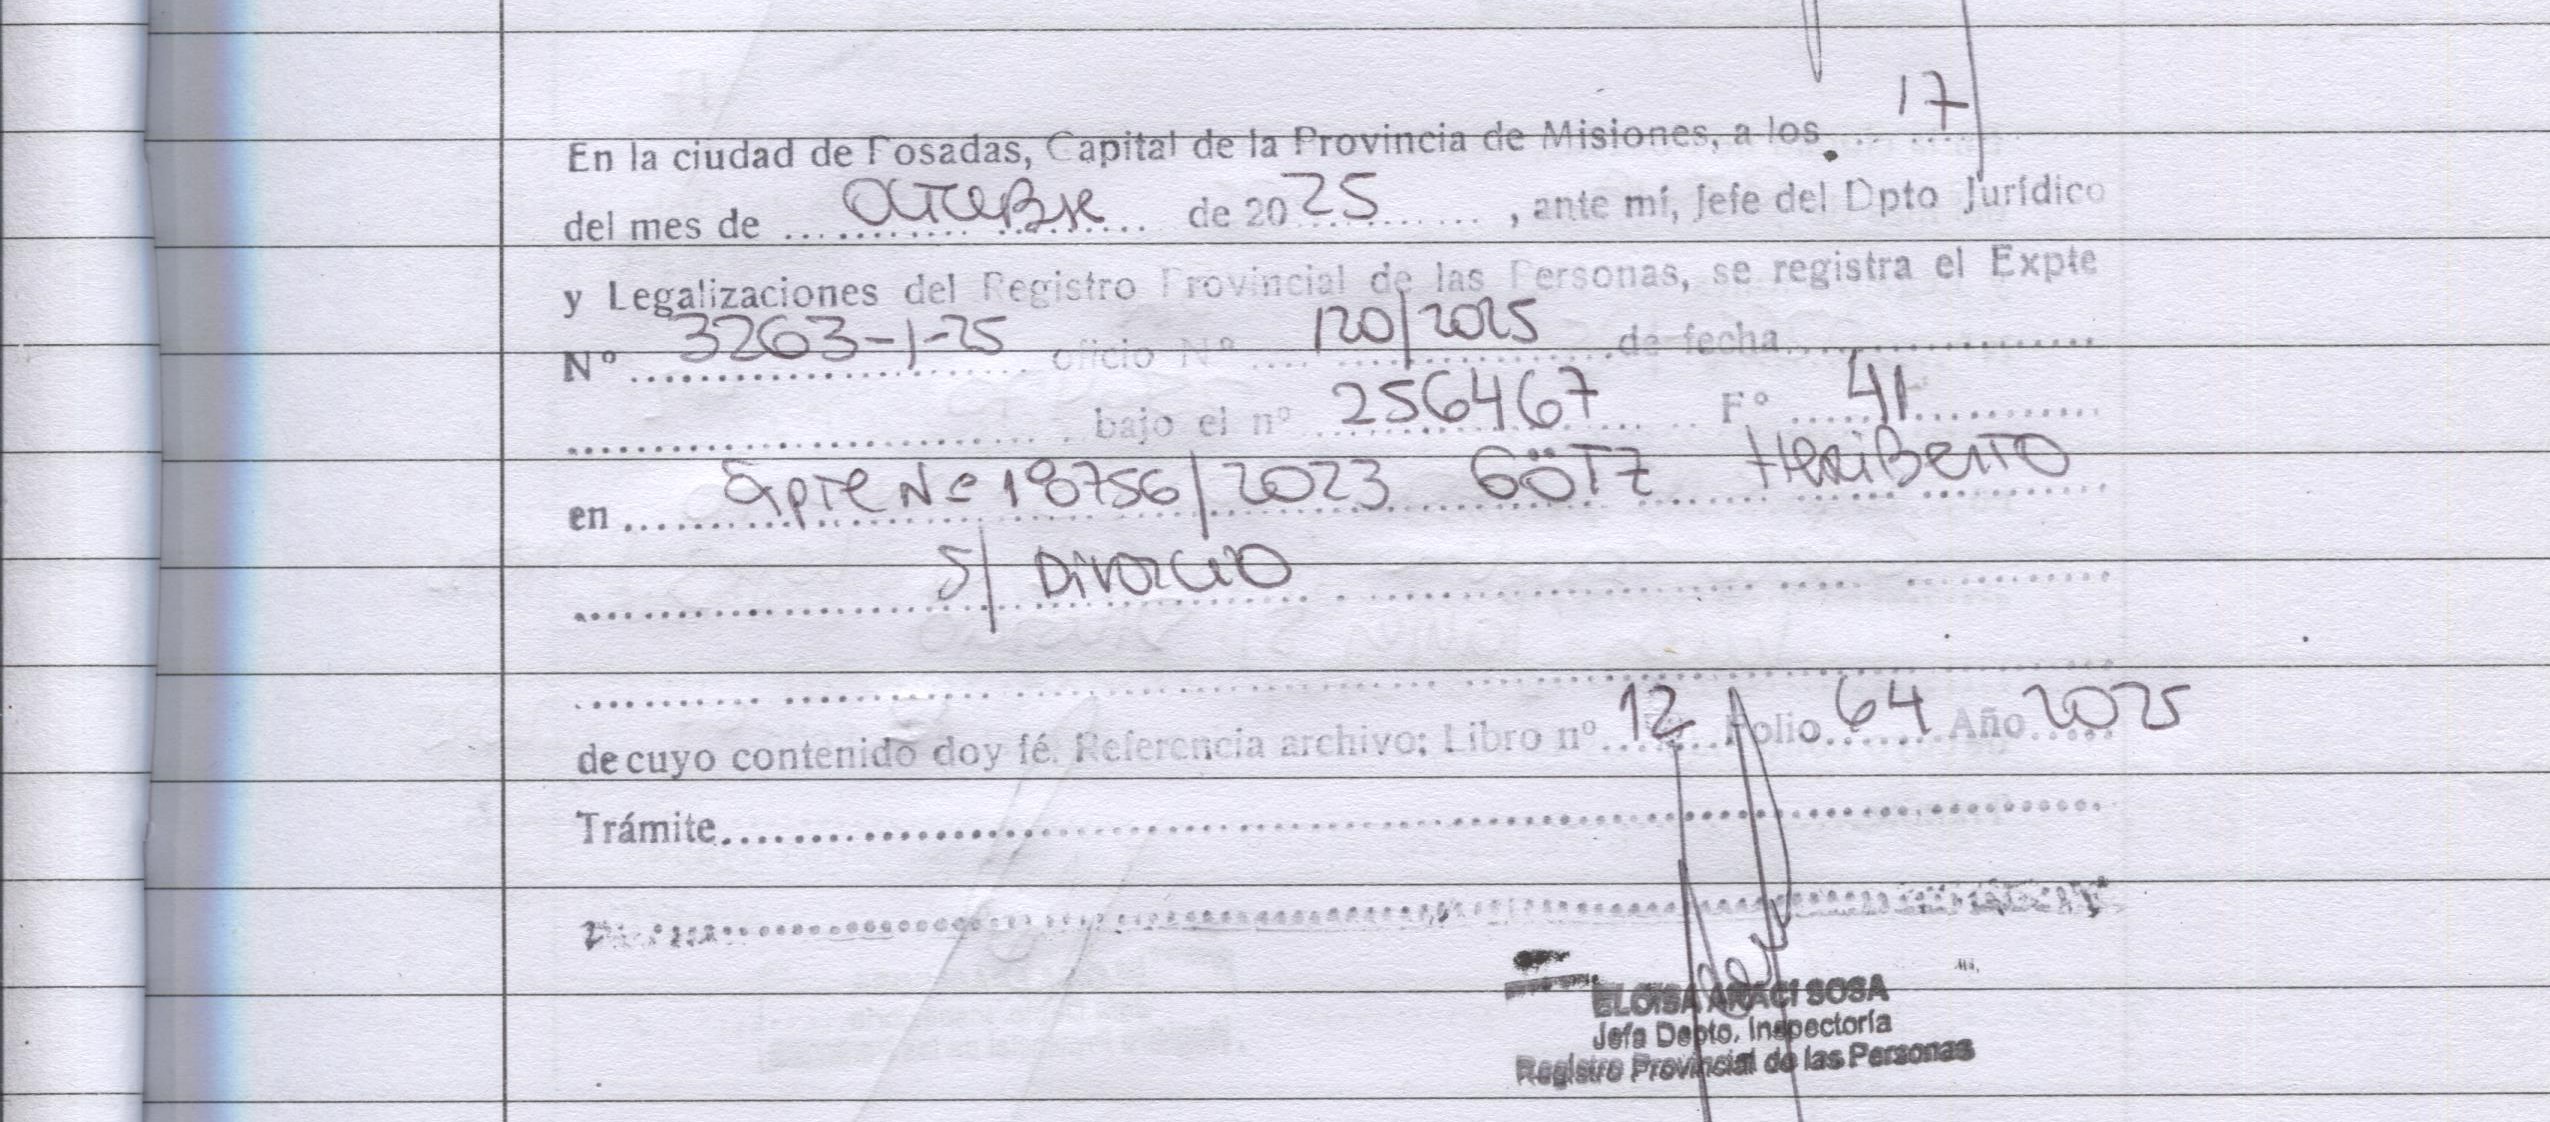 17
En la ciudad de Posadas, Capital de la Provincia de Misiones, a los
del mes de octubre de 2025, ante mí, Jefe del Dpto Jurídico
y Legalizaciones del Registro Provincial de las Personas, se registra el Expte
Nº 3263-1-25 oficio Nº 120/2025 de fecha
bajo el nº 256467 Fº 41
en Expte Nº 18756/2023 GÖTZ HeriBerto
S/ Divorcio
de cuyo contenido doy fé. Referencia archivo; Libro nº 12 Folio 64 Año 2025
Trámite
ELOISA ARACI SOSA
Jefa Depto. Inspectoría
Registro Provincial de las Personas